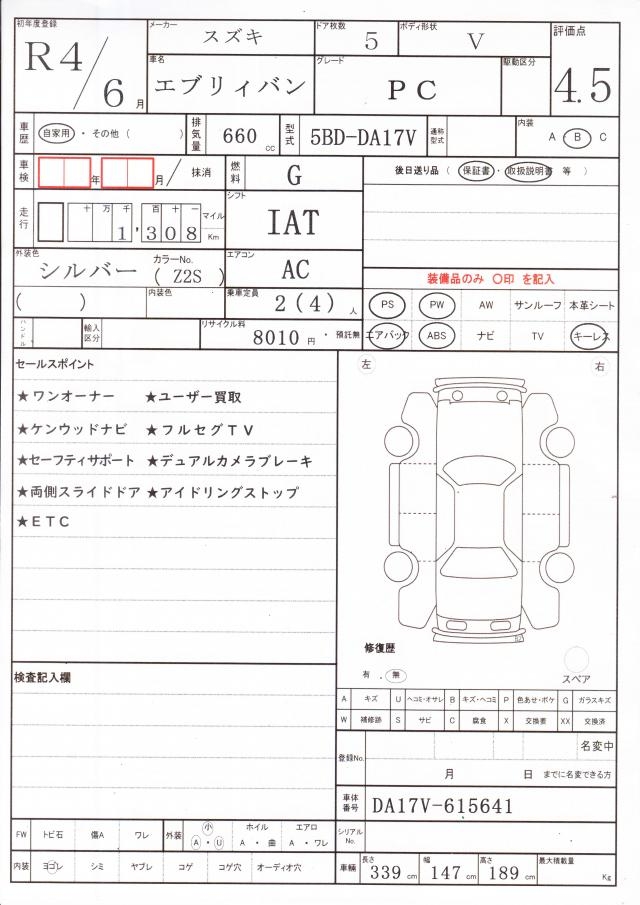 初年度登録 メーカー スズキ ドア枚数 5 ボディ形状 V 評価点
R4/6月 車名 エブリィバン グレード PC 駆動区分 4.5
車歴 自家用・その他( ) 排気量 660cc 型式 5BD-DA17V 通称型式 内装 A・B C
車検 年 月/ 抹消 燃料 G 後日送り品 ( 保証書・取扱説明書 等 )
走行 十 万 千 百 十 一 1'308 マイル Km シフト IAT
外装色 シルバー カラーNo. ( Z2S ) エアコン AC 装備品のみ 〇印 を記入
( ) 内装色 乗車定員 2(4)人 PS PW AW サンルーフ 本革シート
ハンドル 輸入区分 リサイクル料 8010円・預託無 エアバック ABS ナビ TV キーレス
セールスポイント 左 右
★ワンオーナー ★ユーザー買取
★ケンウッドナビ ★フルセグTV
★セーフティサポート ★デュアルカメラブレーキ
★両側スライドドア ★アイドリングストップ
★ETC
修復歴
有 . 無
スペア
検査記入欄
A キズ U ヘコミ・オサレ B キズ・ヘコミ P 色あせ・ボケ G ガラスキズ
W 補修跡 S サビ C 腐食 X 交換要 XX 交換済
登録No. 名変中
月 日 までに名変できる方
車体番号 DA17V-615641
FW トビ石 傷A ワレ 外装 小 A・U ホイル A・曲 エアロ A・ワレ シリアルNo.
内装 ヨゴレ シミ ヤブレ コゲ コゲ穴 オーディオ穴 車輌 長さ 339cm 幅 147cm 高さ 189cm 最大積載量 Kg